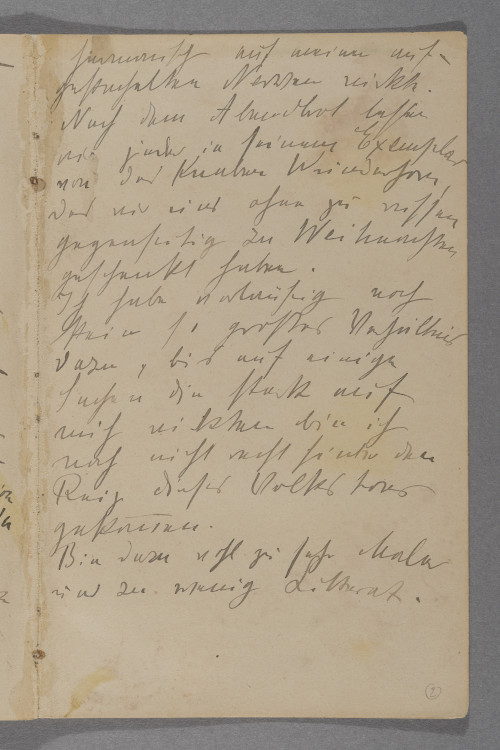 harmonisch auf meine auf-
gestachelten Nerven wirkte.
Nach dem Abendbrot lasen
wir jeder in seinem Exemplar
von des Knaben Wunderhorn,
das wir uns ohne zu wissen
gegenseitig zu Weihnachten
geschenkt haben.
Ich habe vorläufig noch
kein so großes Verhältnis
dazu, bis auf einige
Sachen die stark auf
mich wirkten bin ich
noch nicht recht hinter den
Reiz dieses Volkstones
gekommen.
Bin dazu wohl zu sehr Maler
und zu wenig Litterat.